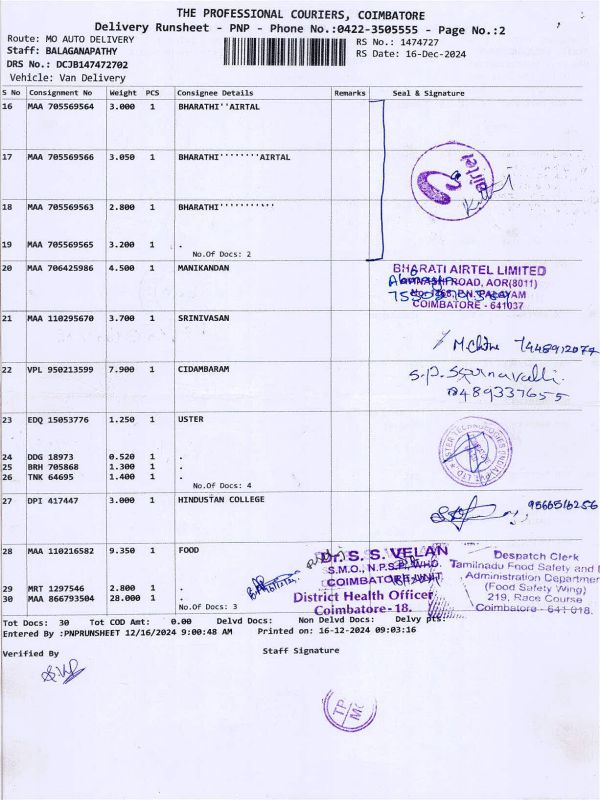 THE PROFESSIONAL COURIERS, COIMBATORE
Delivery Runsheet - PNP - Phone No.:0422-3505555 - Page No.:2
Route: MO AUTO DELIVERY
RS No.: 1474727
Staff: BALAGANAPATHY
RS Date: 16-Dec-2024
DRS No.: DCJB147472702
Vehicle: Van Delivery
S No Consignment No Weight PCS Consignee Details Remarks Seal & Signature
16 MAA 705569564 3.000 1 BHARATHI''AIRTAL
17 MAA 705569566 3.050 1 BHARATHI''''''''AIRTAL
airtel
18 MAA 705569563 2.800 1 BHARATHI''''''''''
19 MAA 705569565 3.200 1 .
No.Of Docs: 2
20 MAA 706425986 4.500 1 MANIKANDAN
BHARATI AIRTEL LIMITED
ROAD, AOR(8011)
PALAYAM
COIMBATORE - 641037
21 MAA 110295670 3.700 1 SRINIVASAN
22 VPL 950213599 7.900 1 CIDAMBARAM
8489337655
23 EDQ 15053776 1.250 1 USTER
24 DDG 18973 0.520 1 .
25 BRH 705868 1.300 1 .
26 TNK 64695 1.400 1 .
No.Of Docs: 4
27 DPI 417447 3.000 1 HINDUSTAN COLLEGE
9566516256
28 MAA 110216582 9.350 1 FOOD
Dr. S. S. VELAN
S.M.O., N.P.S.P., WHO.
COIMBATORE UNIT
District Health Officer
Coimbatore - 18.
Despatch Clerk
Tamilnadu Food Safety and
Administration Departmen
(Food Safety Wing)
219, Race Course
Coimbatore - 641 018.
29 MRT 1297546 2.800 1 .
30 MAA 866793504 28.000 1 .
No.Of Docs: 3
Tot Docs: 30 Tot COD Amt: 0.00 Delvd Docs: Non Delvd Docs: Delvy pts:
Entered By :PNPRUNSHEET 12/16/2024 9:00:48 AM Printed on: 16-12-2024 09:03:16
Verified By
Staff Signature
TP